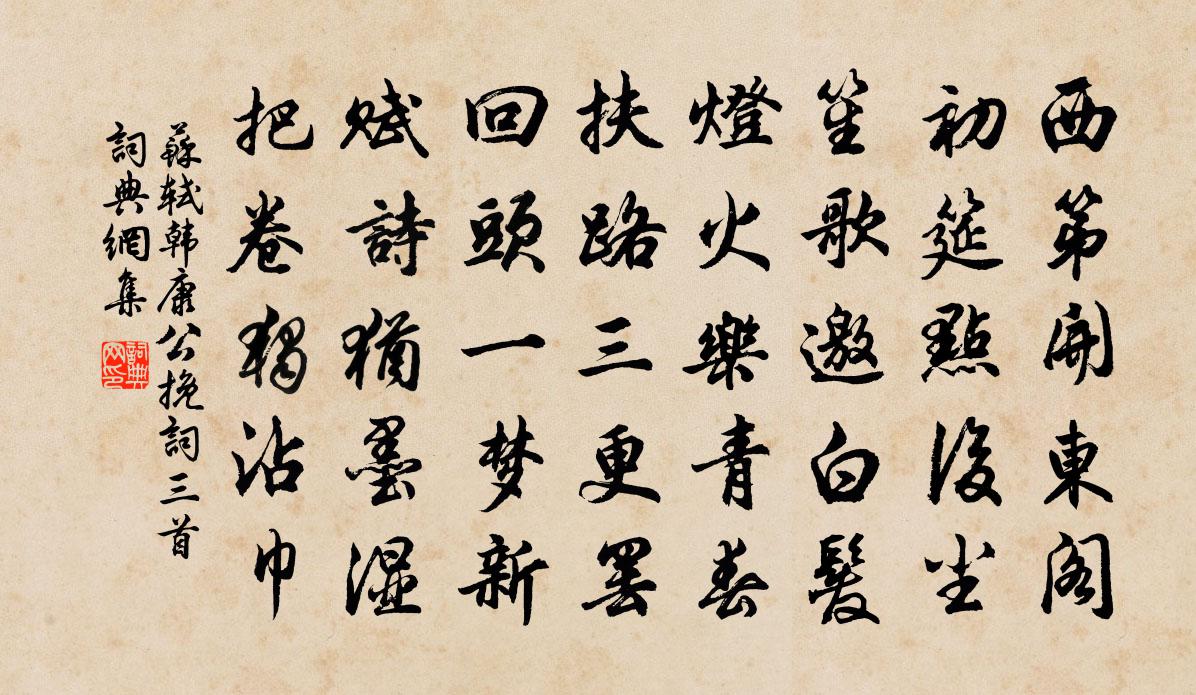 西第開東閣
初筵點後塵
笙歌邀白髮
燈火樂青春
扶路三更罷
回頭一梦新
賦詩猶墨濕
把卷獨沾巾
蘇軾韩康公挽詞三首
詞典網集
詞典网印